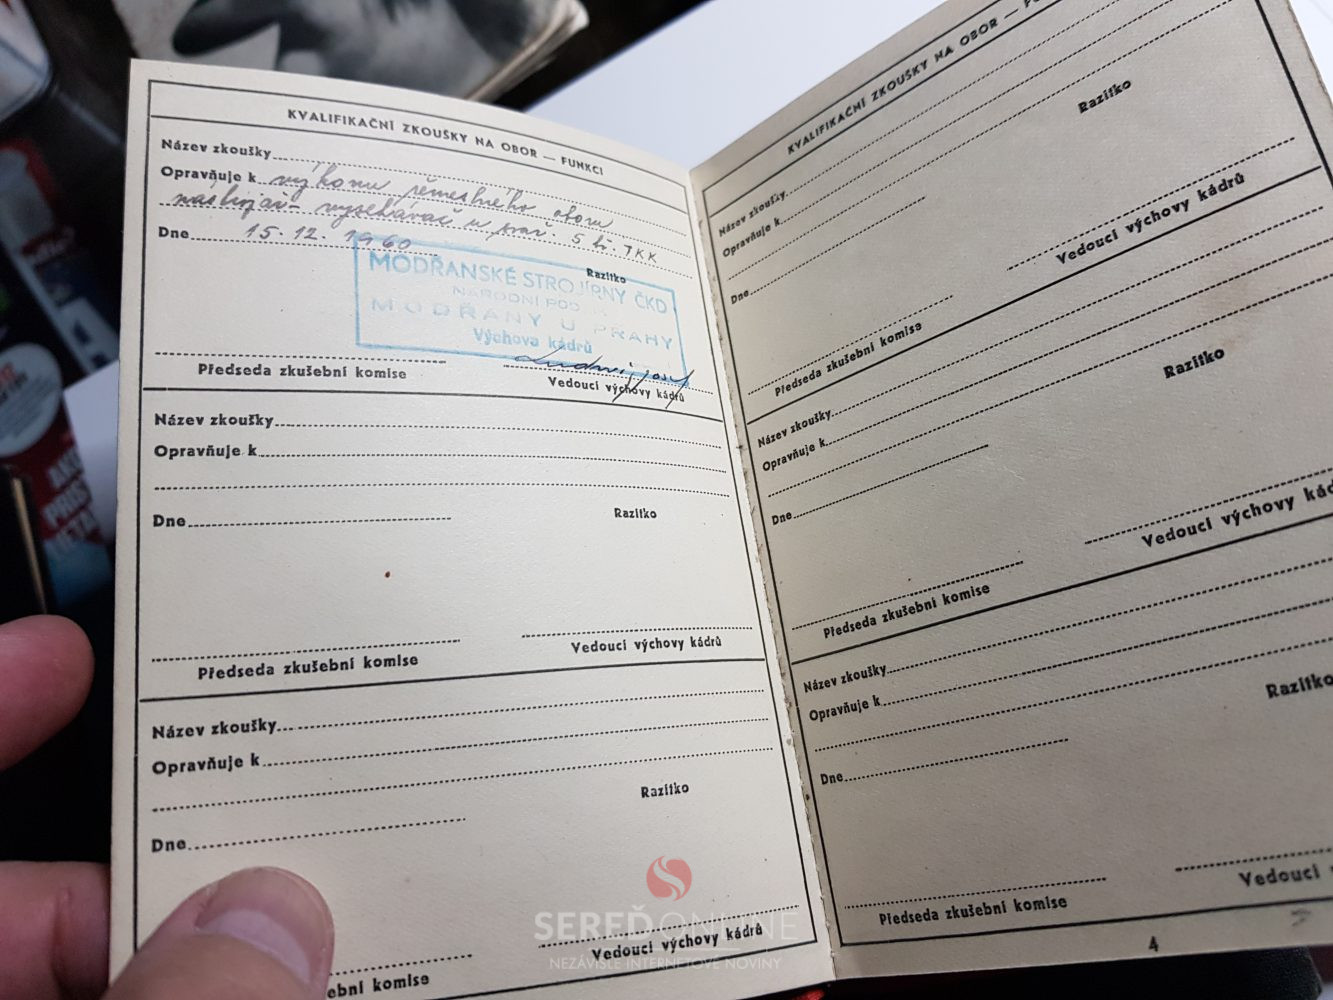 KVALIFIKAČNÍ ZKOUŠKY NA OBOR — FUNKCI
Název zkoušky
Opravňuje k výkonu řemeslného oboru
Dne 15. 12. 1960
Razítko
MODŘANSKÉ STROJÍRNY ČKD
NÁRODNÍ POD
MODŘANY U PRAHY
Výchova kádrů
Předseda zkušební komise
Vedoucí výchovy kádrů
Název zkoušky
Opravňuje k
Dne
Razítko
Předseda zkušební komise
Vedoucí výchovy kádrů
Název zkoušky
Opravňuje k
Razítko
Dne
Vedoucí výchovy kádrů
ební komise
KVALIFIKAČNÍ ZKOUŠKY NA OBOR — FU
Razítko
Název zkoušky
Opravňuje k
Dne
Vedoucí výchovy kádrů
Předseda zkušební komise
Razítko
Název zkoušky
Opravňuje k
Dne
Vedoucí výchovy kád
Předseda zkušební komise
Název zkoušky
Razítko
Opravňuje k
Dne
Vedoucí
Předseda zkušební komise
4
SEREĎ ONLINE
NEZÁVISLÉ INTERNETOVÉ NOVINY